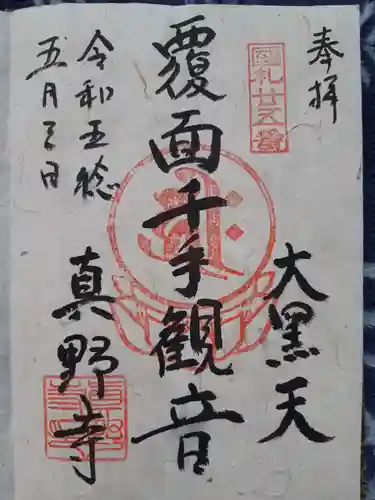 奉拝
國札廿五番
大黒天
覆面千手観音
令和五稔
五月三日
真野寺